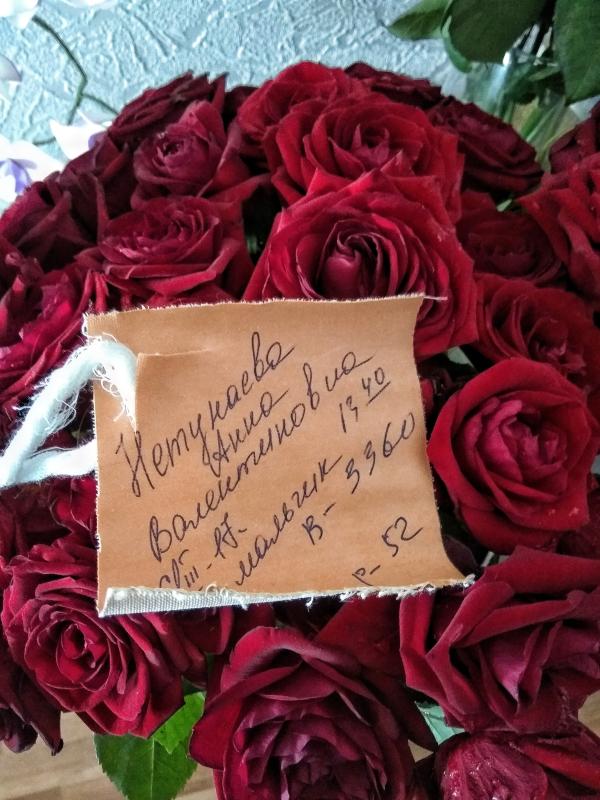 Нетунаева
Анна
Валентиновна
13 40
мальчик
В- 3360
Р- 52